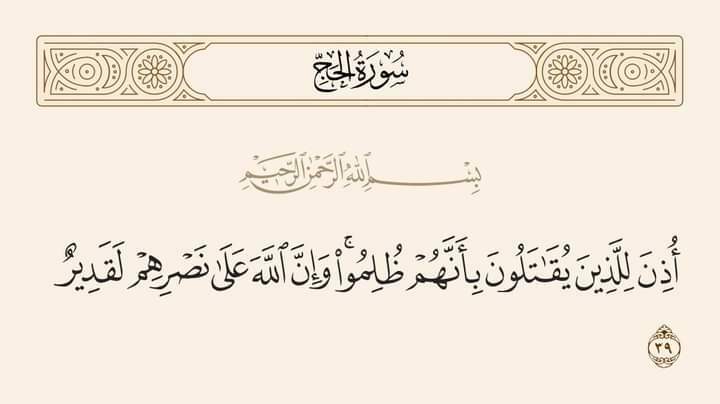 سُورَةُ الحَجّ
بِسْمِ ٱللَّهِ ٱلرَّحْمَٰنِ ٱلرَّحِيمِ
أُذِنَ لِلَّذِينَ يُقَٰتَلُونَ بِأَنَّهُمْ ظُلِمُوا۟ۚ وَإِنَّ ٱللَّهَ عَلَىٰ نَصْرِهِمْ لَقَدِيرٌ
٣٩